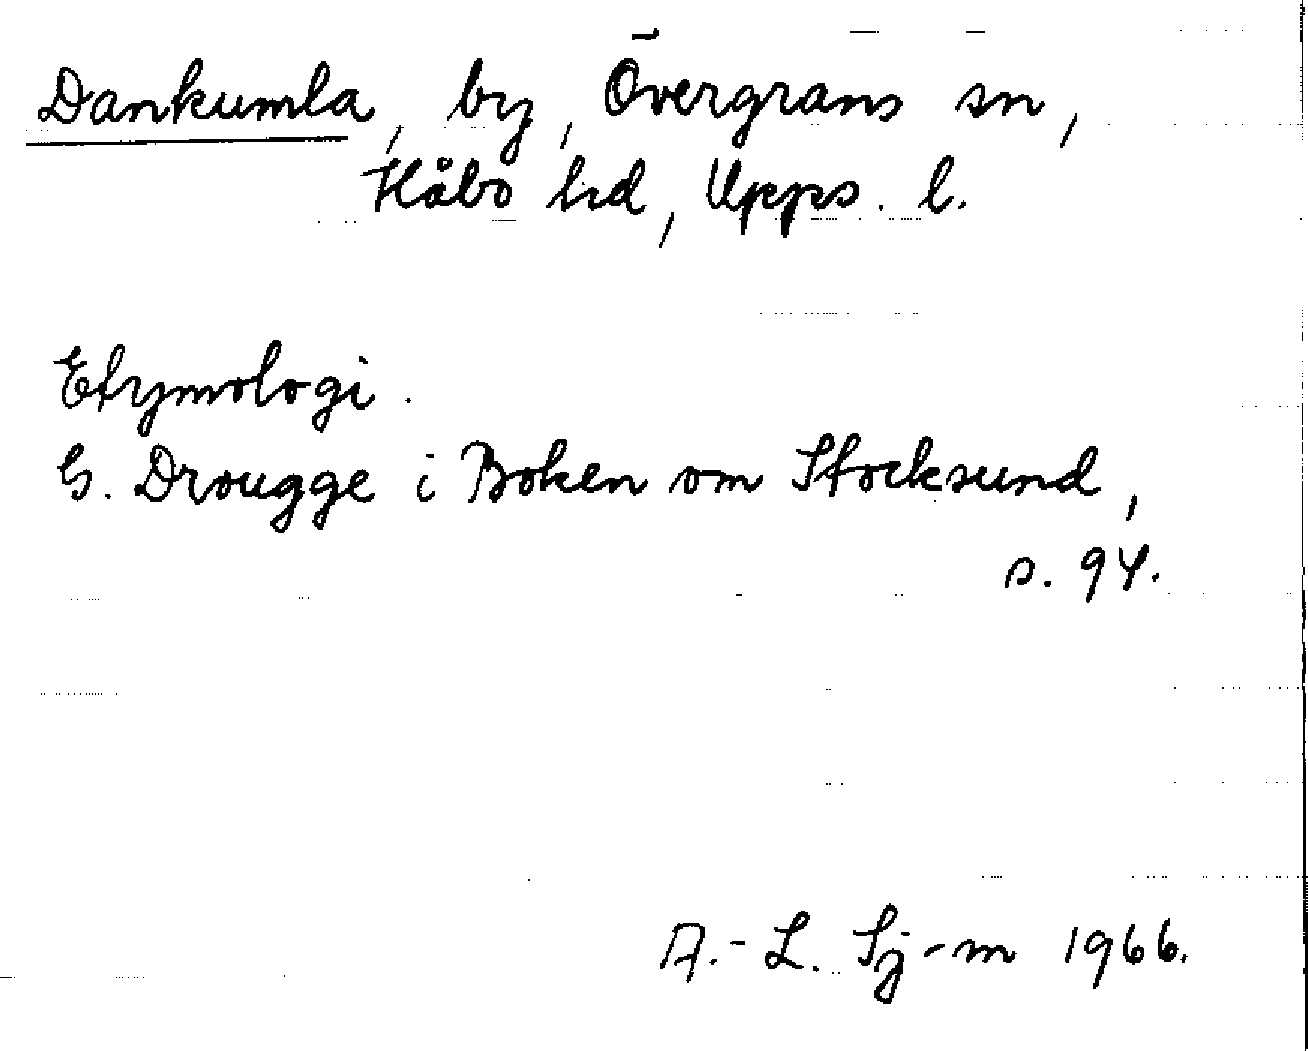 Dankumla, by, Övergrans sn,
Håbo hd, Upps. l.
Etymologi.
G. Drougge i Boken om Stocksund,
s. 94.
A.-L. Sj-m 1966.